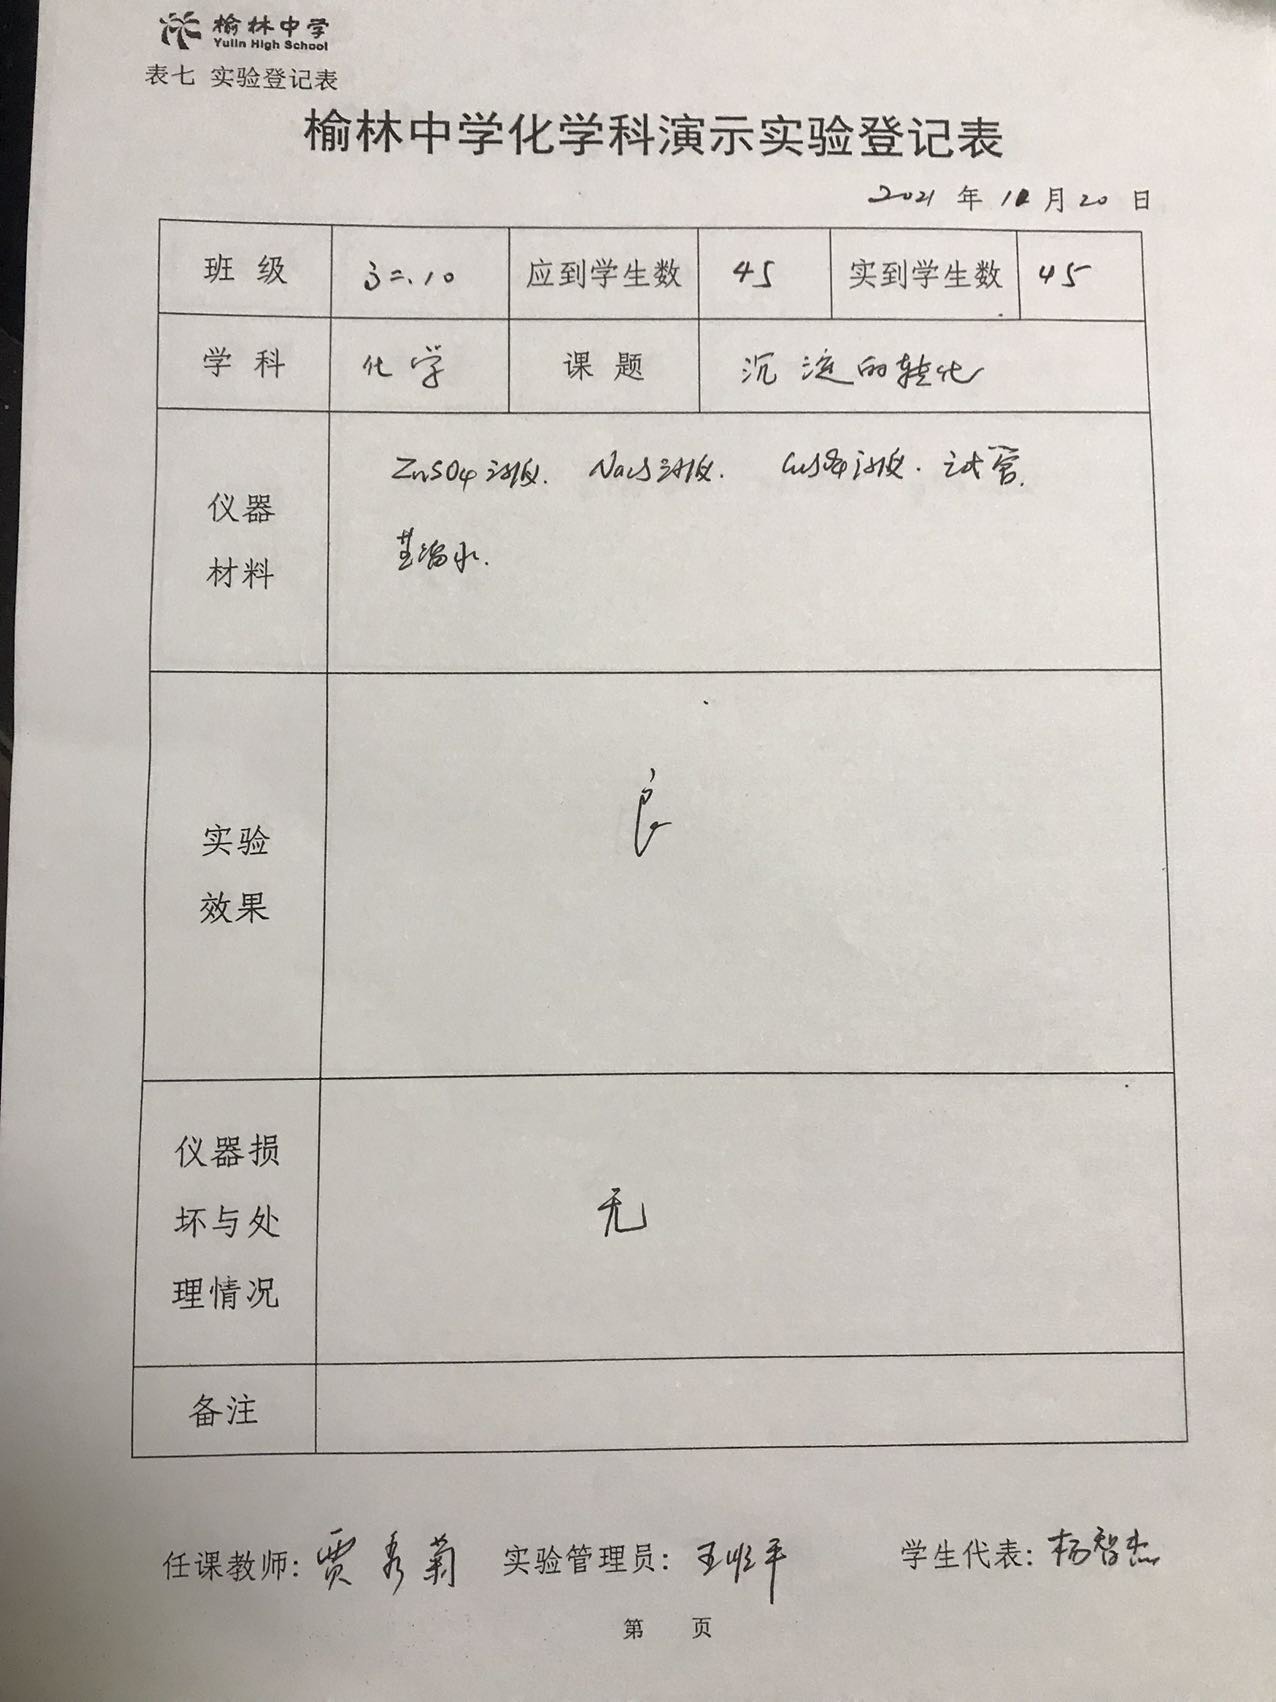 榆林中学
Yulin High School
表七 实验登记表
榆林中学化学科演示实验登记表
2021 年 月 20 日
班 级 高二.10 应到学生数 45 实到学生数 45
学 科 化学 课 题 沉淀的转化
仪器
材料
ZnSO4溶液. Na2S溶液. CuSO4溶液. 试管.
蒸馏水.
实验
效果
良
仪器损
坏与处
理情况
无
备注
任课教师: 贾秀菊 实验管理员: 王顺平 学生代表: 杨智杰
第 页